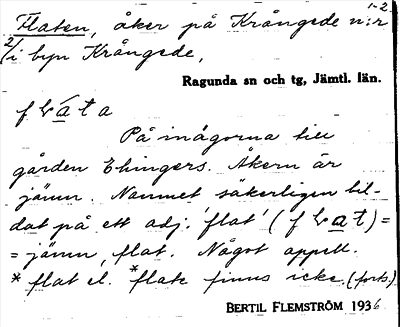 1-2
Flaten, åker på Krångede n:r
2/i byn Krångede,
Ragunda sn och tg, Jämtl. län.
På inägorna till
gården Ehingers. Åkern är
jämn. Namnet säkerligen bil-
dat på ett adj. 'flat' =
= jämn, flat. Något appell.
*flat el. *flate finns icke (forts.)
BERTIL FLEMSTRÖM 1936